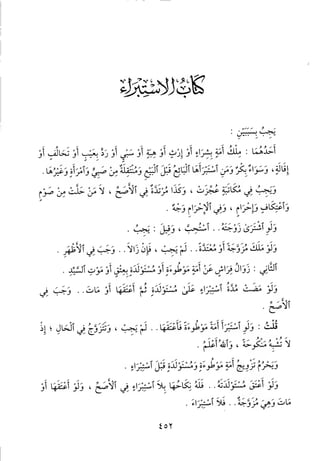 كتاب الاستبراء
يَجِبُ بِسَبَبَيْنِ :
أَحَدُهُمَا : مِلْكُ أَمَةٍ بِشِرَاءٍ أَوْ إِرْثٍ أَوْ هِبَةٍ أَوْ سَبْيٍ أَوْ رَدٍّ بِعَيْبٍ أَوْ تَحَالُفٍ أَوْ
إِقَالَةٍ ، وَسَوَاءٌ بِكْرٌ وَمَنِ ٱسْتَبْرَأَهَا ٱلْبَائِعُ قَبْلَ ٱلْبَيْعِ وَمُنْتَقِلَةٌ مِنْ صَبِيٍّ وَٱمْرَأَةٍ وَغَيْرُهَا .
وَيَجِبُ فِي مُكَاتَبَةٍ عُجِّزَتْ ، وَكَذَا مُرْتَدَّةٌ فِي ٱلأَصَحِّ ، لاَ مَنْ حَلَّتْ مِنْ صَوْمٍ
وَٱعْتِكَافٍ وَإِحْرَامٍ ، وَفِي ٱلإِحْرَامِ وَجْهٌ .
وَلَوِ ٱشْتَرَىٰ زَوْجَتَهُ . . ٱسْتُحِبَّ ، وَقِيلَ : يَجِبُ .
وَلَوْ مَلَكَ مُزَوَّجَةً أَوْ مُعْتَدَّةً . . لَمْ يَجِبْ ، فَإِنْ زَالاَ . . وَجَبَ فِي ٱلأَظْهَرِ .
ٱلثَّانِي : زَوَالُ فِرَاشٍ عَنْ أَمَةٍ مَوْطُوءَةٍ أَوْ مُسْتَوْلَدَةٍ بِعِتْقٍ أَوْ مَوْتِ ٱلسَّيِّدِ .
وَلَوْ مَضَتْ مُدَّةُ ٱسْتِبْرَاءٍ عَلَىٰ مُسْتَوْلَدَةٍ ثُمَّ أَعْتَقَهَا أَوْ مَاتَ . . وَجَبَ فِي
ٱلأَصَحِّ .
قُلْتُ : وَلَوِ ٱسْتَبْرَأَ أَمَةً مَوْطُوءَةً فَأَعْتَقَهَا . . لَمْ يَجِبْ ، وَتَتَزَوَّجُ فِي ٱلْحَالِ ؛ إِذْ
لاَ تُشْبِهُ مَنْكُوحَةً ، وَٱللهُ أَعْلَمُ .
وَيَحْرُمُ تَزْوِيجُ أَمَةٍ مَوْطُوءَةٍ وَمُسْتَوْلَدَةٍ قَبْلَ ٱسْتِبْرَاءٍ .
وَلَوْ أَعْتَقَ مُسْتَوْلَدَتَهُ . . فَلَهُ نِكَاحُهَا بِلاَ ٱسْتِبْرَاءٍ فِي ٱلأَصَحِّ ، وَلَوْ أَعْتَقَهَا أَوْ
مَاتَ وَهِيَ مُزَوَّجَةٌ . . فَلاَ ٱسْتِبْرَاءَ .
٤٥٢